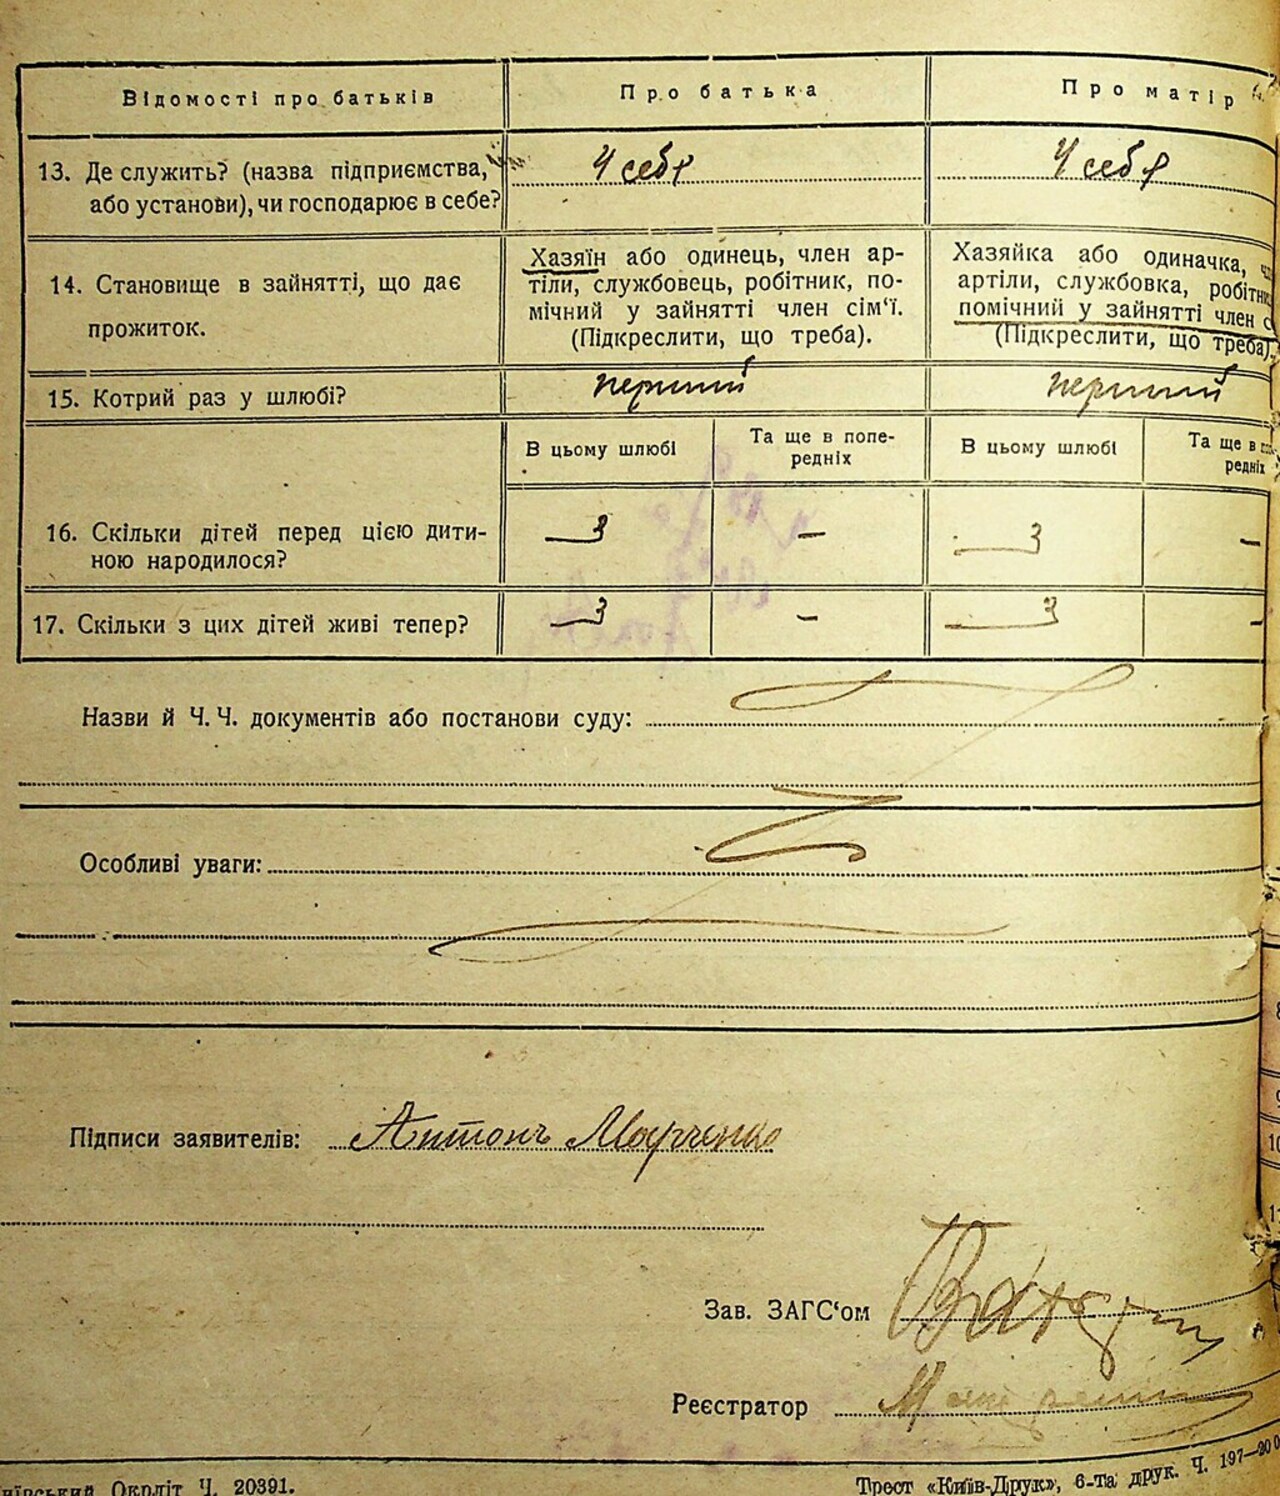 Відомості про батьків
Про батька
Про матір
13. Де служить? (назва підприємства,
або установи), чи господарює в себе?
У себя
У себя
14. Становище в зайнятті, що дає
прожиток.
Хазяїн або одинець, член ар-
тіли, службовець, робітник, по-
мічний у зайнятті член сім‘ї.
(Підкреслити, що треба).
Хазяйка або одиначка,
артіли, службовка, робітн
помічний у зайнятті член с
(Підкреслити, що треба).
15. Котрий раз у шлюбі?
перший
перший
В цьому шлюбі
Та ще в попе-
редніх
В цьому шлюбі
Та ще в по
редніх
16. Скільки дітей перед цією дити-
ною народилося?
3
—
3
—
17. Скільки з цих дітей живі тепер?
3
—
3
—
Назви й Ч. Ч. документів або постанови суду:
Особливі уваги:
Підписи заявителів: Антонъ Марченко
Зав. ЗАГС‘ом
Реєстратор
ївський Окрліт Ч. 20391.
Трест «Київ-Друк», 6-та друк. Ч. 197—200